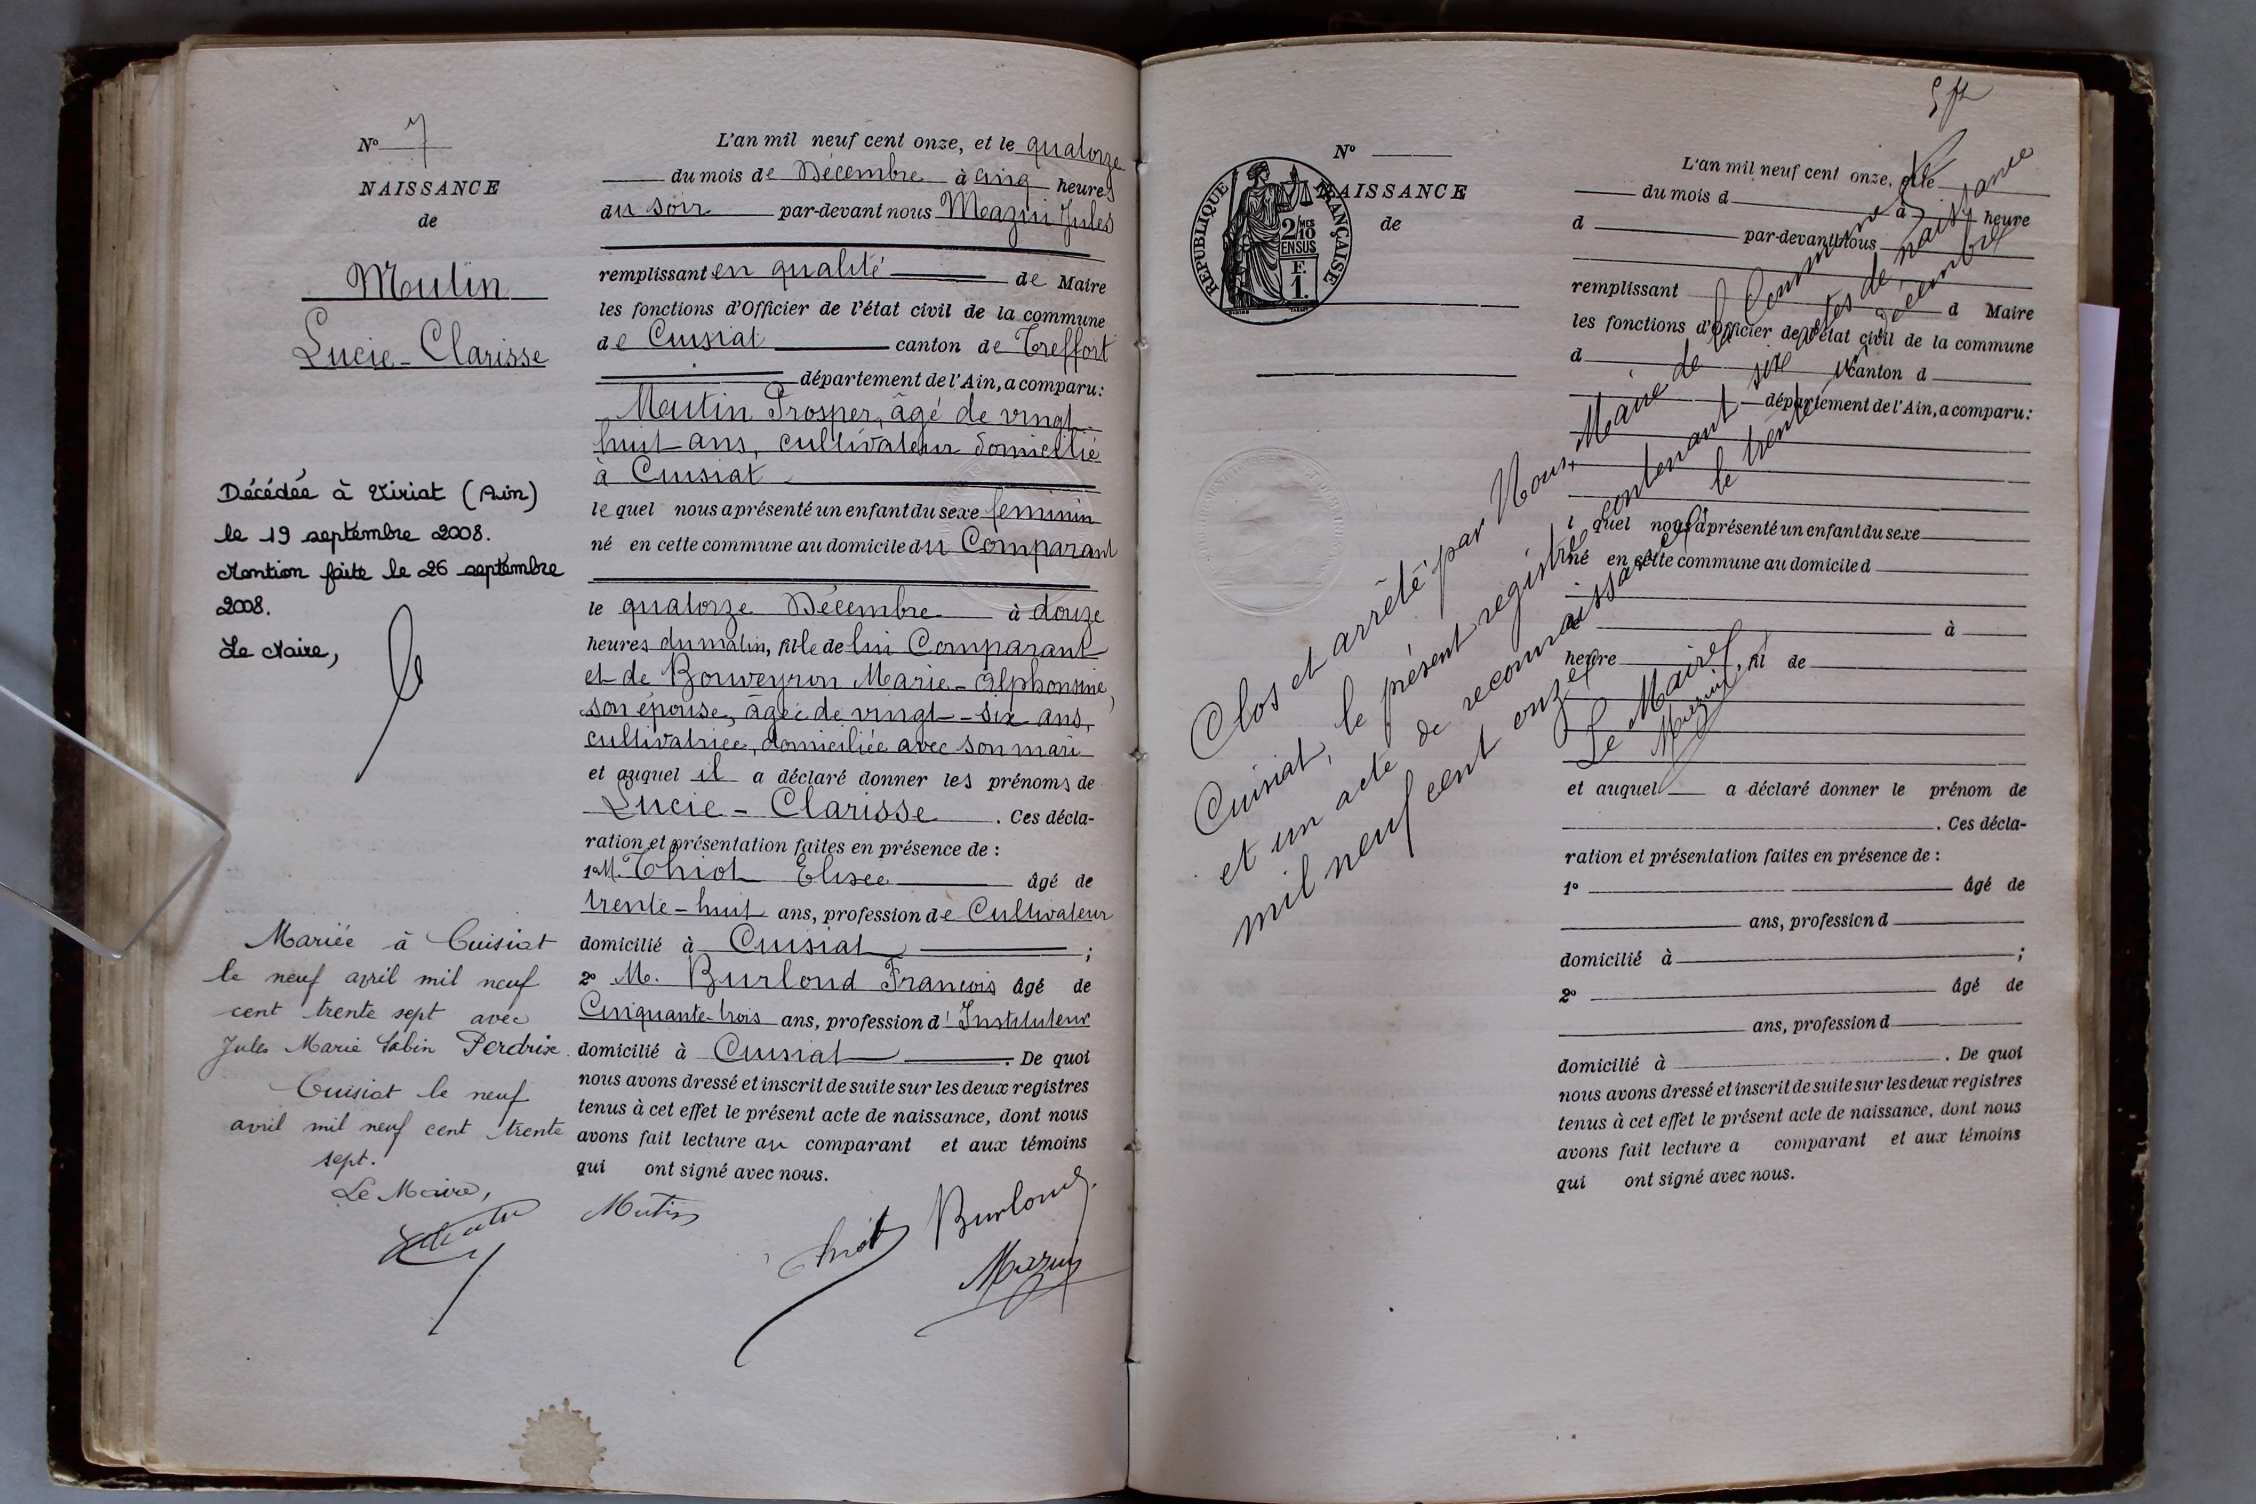 N° 7
NAISSANCE
de
Mutin
Lucie-Clarisse
Décédée à Viriat (Ain)
le 19 septembre 2008.
Mention faite le 26 septembre
2008.
Le Maire,
Mariée à Cuisiat
le neuf avril mil neuf
cent trente sept avec
Jules Marie Sabin Perdrix.
Cuisiat le neuf
avril mil neuf cent trente
sept.
Le Maire,
L'an mil neuf cent onze, et le quatorze
du mois de Décembre à cinq heures
du soir par-devant nous Mazuir Jules
remplissant en qualité de Maire
les fonctions d'Officier de l'état civil de la commune
de Cuisiat canton de Treffort
département de l'Ain, a comparu:
Mutin Prosper, âgé de vingt-
huit ans, cultivateur domicilié
à Cuisiat
lequel nous a présenté un enfant du sexe feminin
né en cette commune au domicile du Comparant
le quatorze Décembre à douze
heures du matin, fille de lui Comparant
et de Bouveyron Marie-Alphonsine,
son épouse, âgée de vingt-six ans,
cultivatrice, domiciliée avec son mari
et auquel il a déclaré donner les prénoms de
Lucie-Clarisse. Ces décla-
ration et présentation faites en présence de :
1° M. Thiot Elisée âgé de
trente-huit ans, profession de Cultivateur
domicilié à Cuisiat ;
2° M. Burloud François âgé de
Cinquante-trois ans, profession d'Instituteur
domicilié à Cuisiat. De quoi
nous avons dressé et inscrit de suite sur les deux registres
tenus à cet effet le présent acte de naissance, dont nous
avons fait lecture au comparant et aux témoins
qui ont signé avec nous.
Mutin
Thiot
Burloud
Mazuir
N°
NAISSANCE
de
RÉPUBLIQUE FRANÇAISE
2/10 MES
EN SUS
F.
1.
L'an mil neuf cent onze, et le
du mois d à heure
d par-devant nous
remplissant d Maire
les fonctions d'Officier de l'état civil de la commune
d canton d
département de l'Ain, a comparu:
l quel nous a présenté un enfant du sexe
né en cette commune au domicile d
le à
heure, fil de
et auquel a déclaré donner le prénom de
. Ces décla-
ration et présentation faites en présence de :
1° âgé de
ans, profession d
domicilié à ;
2° âgé de
ans, profession d
domicilié à . De quoi
nous avons dressé et inscrit de suite sur les deux registres
tenus à cet effet le présent acte de naissance, dont nous
avons fait lecture a comparant et aux témoins
qui ont signé avec nous.
Clos et arrêté par Nous, Maire de la Commune de
Cuisiat, le présent registre contenant six actes de naissance
et un acte de reconnaissance, le trente un décembre
mil neuf cent onze.
Le Maire
Mazuir